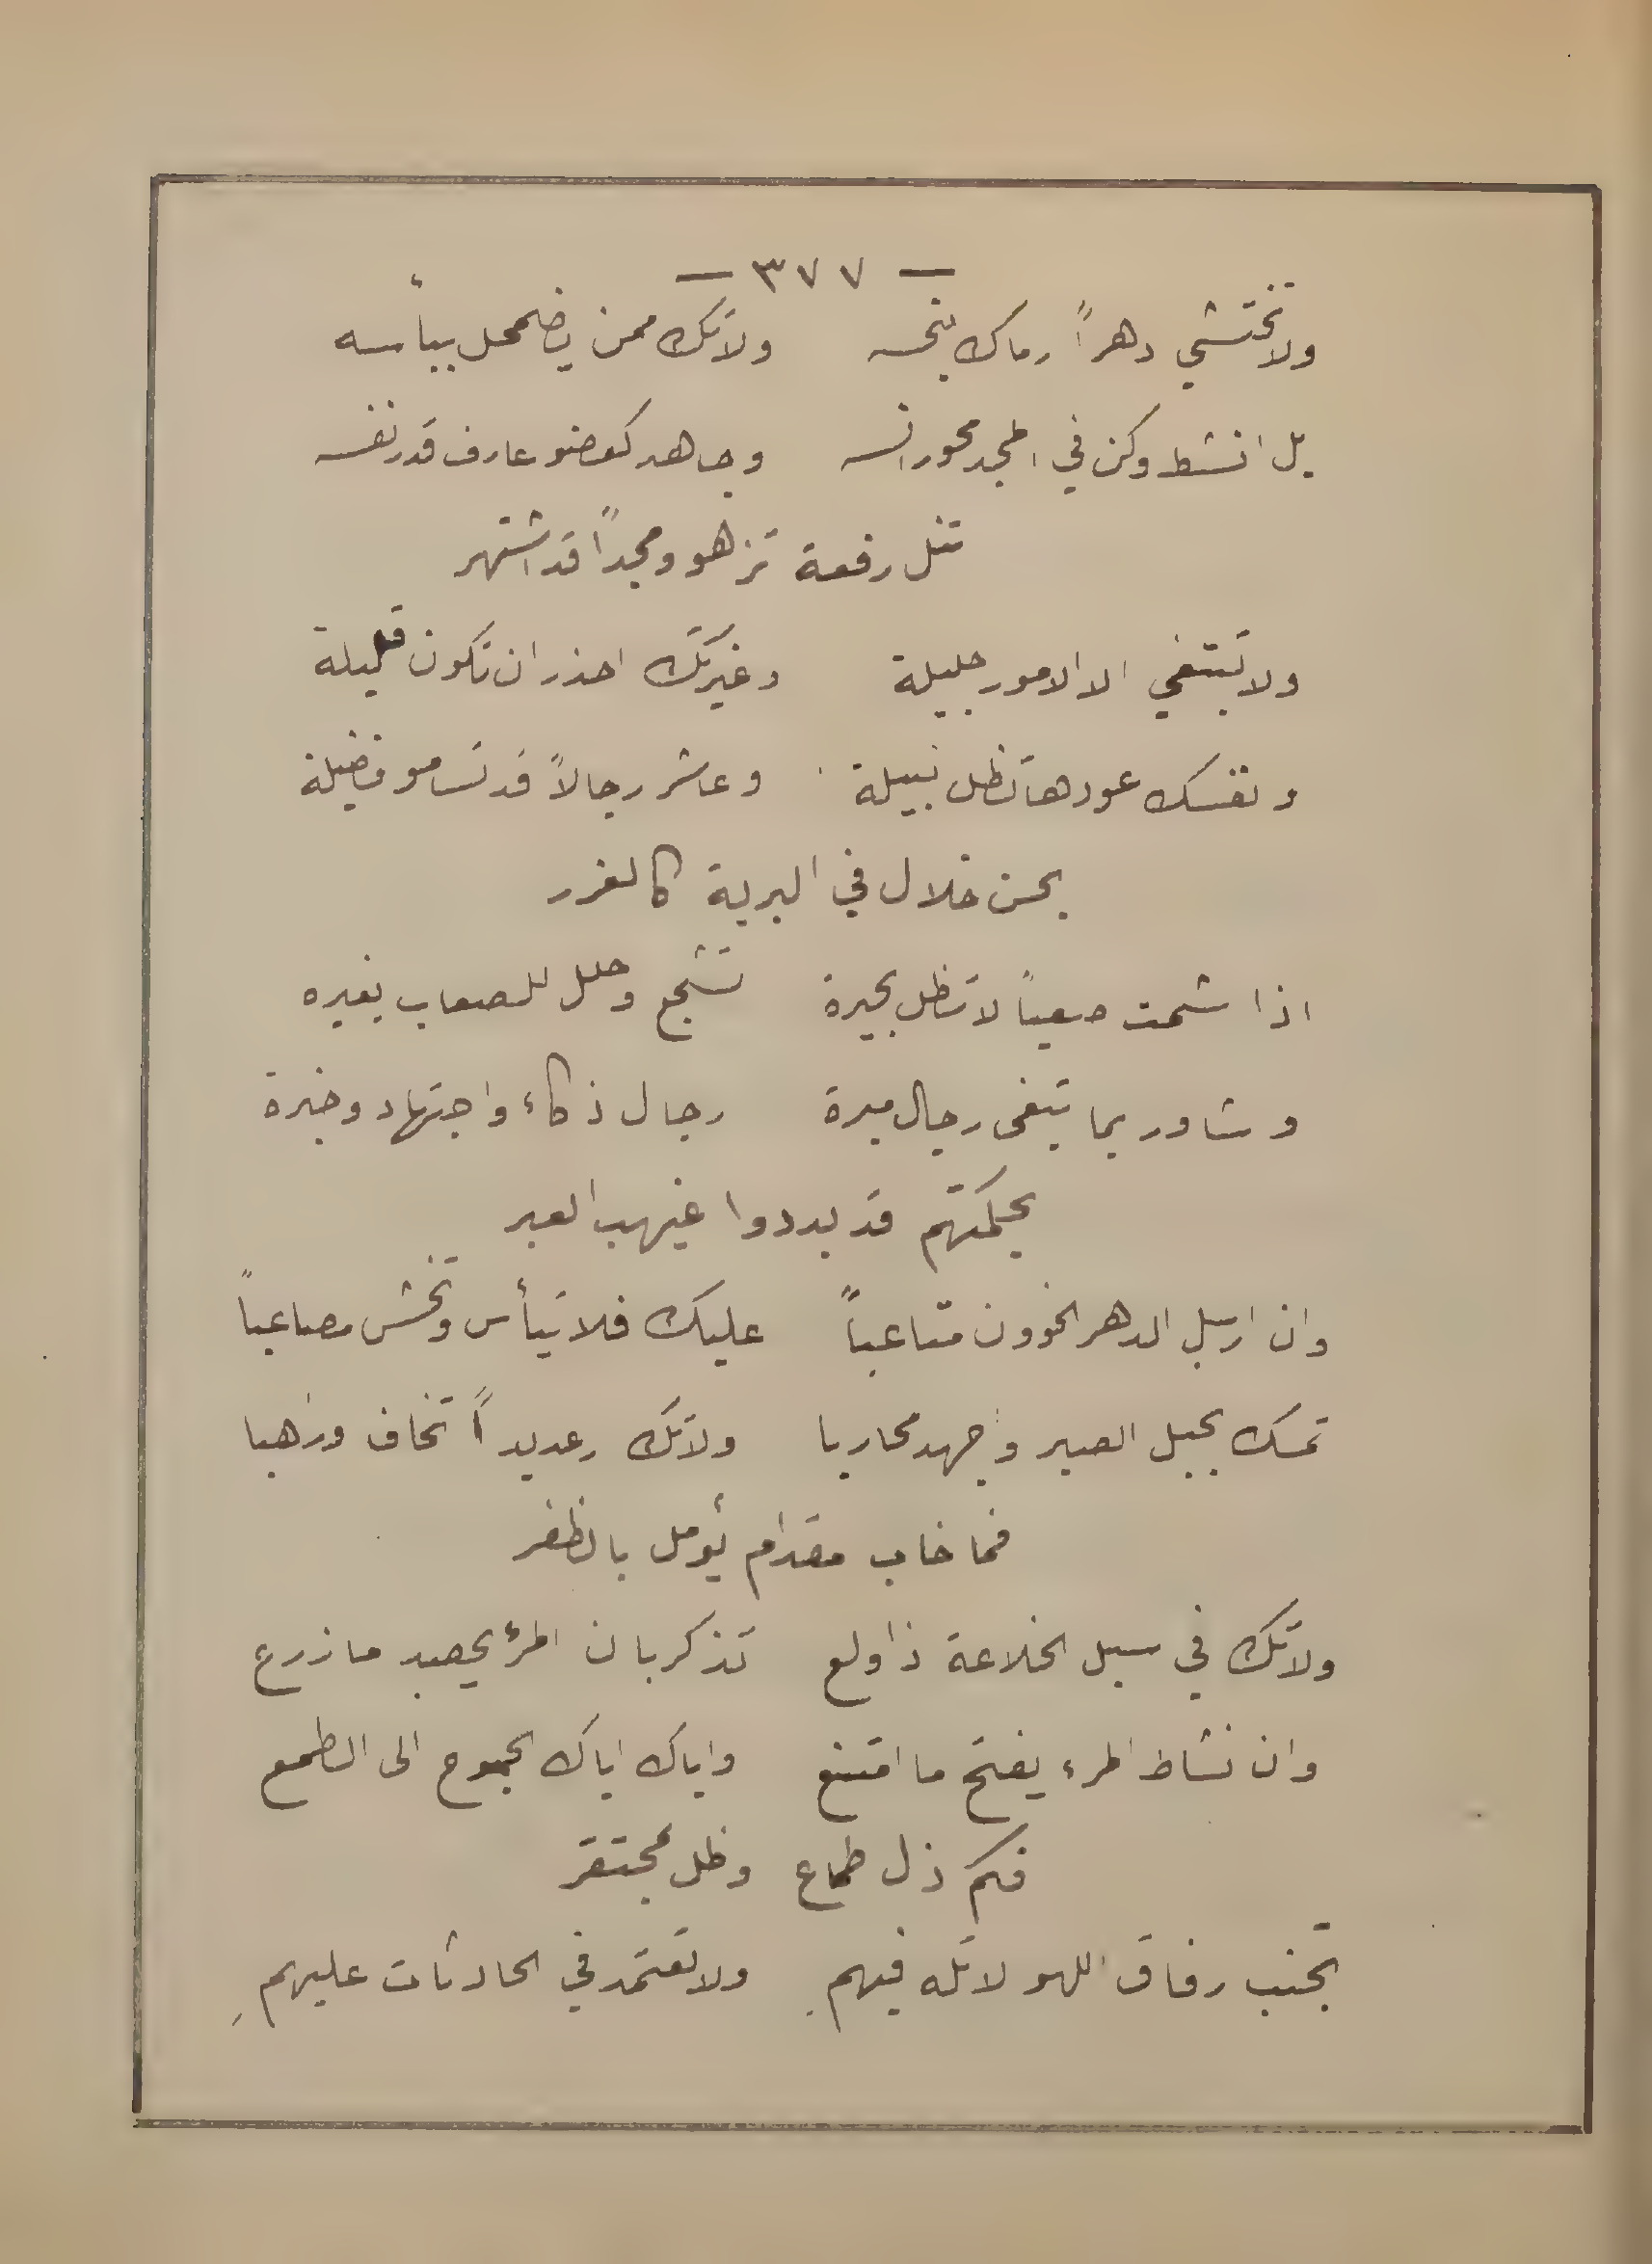 — ٣٧٧ —
ولا تختشي دهراً رماك بنحسه ولا تك ممن يضمحل بيأسه
بل انشط وكن في المجد محور انسه وجاهد كعضو عارف قدر نفسه
تنل رفعة تزهو ومجداً قد اشتهر
ولا تبتغي الا الامور جليلة وغيرتك احذر ان تكون قليلة
ونفسك عودها تظل نبيلة وعاشر رجالاً قد تساموا فضيلة
بحسن خلال في البرية كالغرر
اذا شمت صعباً لا تظل بحيرة تشجع وحلل للصعاب بغيره
وشاور بما تبغى رجال مبرة رجال ذكاء واجتهاد وخبرة
بحكمتهم قد بددوا غيهب العبر
وان ارسل الدهر الخوون متاعباً عليك فلا تيأس وتخش مصاعباً
تمسك بحبل الصبر واجهد محاربا ولا تك رعديداً تخاف وراهبا
فما خاب مقدام يؤمل بالظفر
ولا تك في سبل الخلاعة ذا ولع تذكر بان المرء يحصد ما زرع
وان نشاط المرء يفتح ما امتنع واياك اياك الجموح الى الطمع
فكم ذل طماع وظل محتقر
تجنب رفاق اللهو لا تله فيهمِ ولا تعتمد في الحادثات عليهمِ